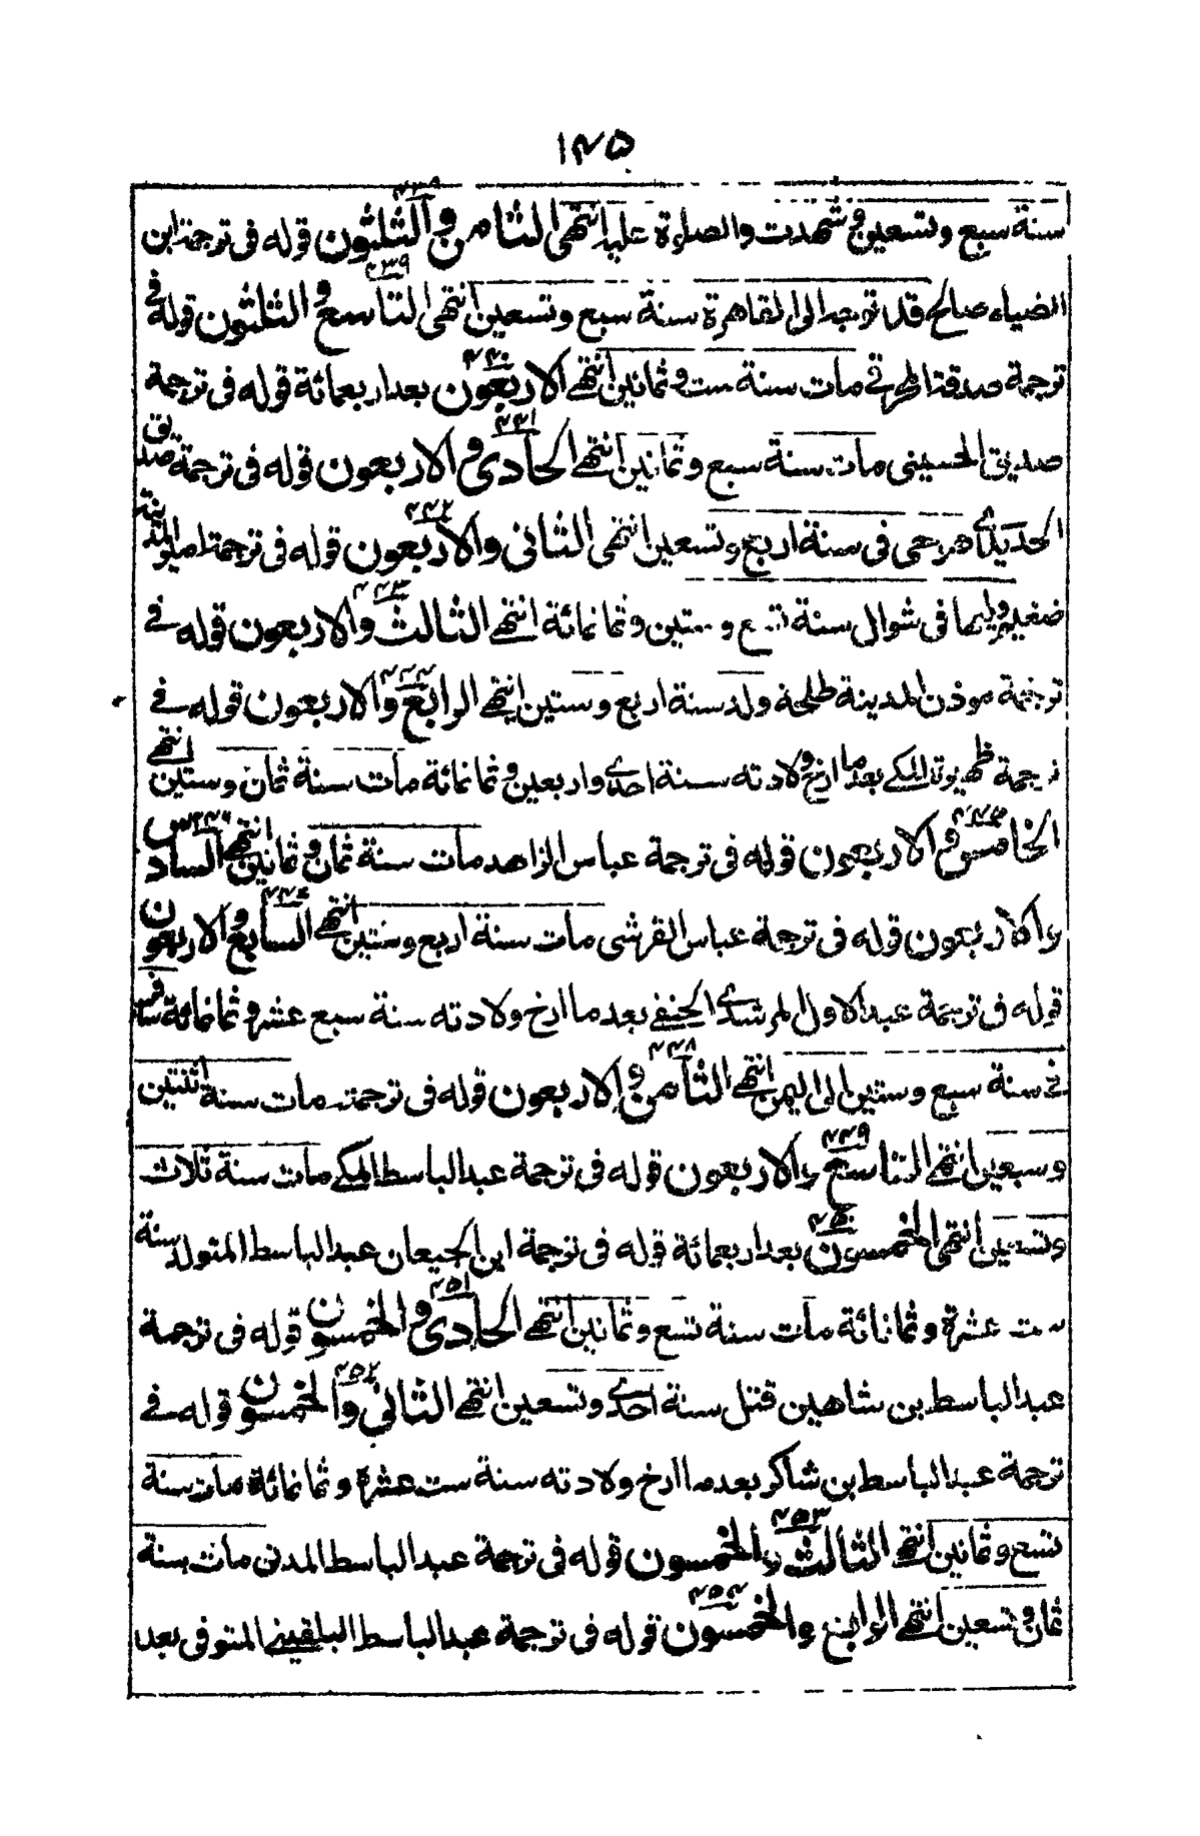 ١٤٥
سنة سبع وتسعين وشهدت والصلوة عليه انتهى الثامن والثلثون قوله فى ترجمة ابن
٤٣٩
الضياء صالح قد توجه الى القاهرة سنة سبع وتسعين انتهى التاسع والثلثون قوله فى
٤٤٠
ترجمة صدقة مات سنة ست وثمانين انتهى الاربعون بعد اربعمائة قوله فى ترجمة
٤٤١
صديق الحسينى مات سنة سبع وثمانين انتهى الحادى والاربعون قوله فى ترجمة صديق
٤٤٢
فى سنة اربع وتسعين انتهى الثانى والاربعون قوله فى ترجمة امير المدينة
٤٤٣
ضغيم وليها فى شوال سنة وستين وثمانمائة انتهى الثالث والاربعون قوله فى
٤٤٤
ترجمة موذن المدينة طلحة ولد سنة اربع وستين انتهى الرابع والاربعون قوله فى
ترجمة ظهيرة المكى بعد ما ارخ ولادته سنة احدى واربعين وثمانمائة مات سنة ثمان وستين انتهى
الخامس والاربعون قوله فى ترجمة عباس الزاهد مات سنة ثمان وثمانين انتهى السادس
والاربعون قوله فى ترجمة عباس القرشى مات سنة اربع وستين انتهى السابع والاربعون
قوله فى ترجمة عبد الاول المرشدى الحنفى بعد ما ارخ ولادته سنة سبع عشر وثمانمائة سافر
٤٤٨
فى سنة سبع وستين الى اليمن انتهى الثامن والاربعون قوله فى ترجمته مات سنة اثنتين
٤٤٩
وسبعين انتهى التاسع والاربعون قوله فى ترجمة عبد الباسط المكى مات سنة ثلاث
٤٥٠
وتسعين انتهى الخمسون بعد اربعمائة قوله فى ترجمة ابن الجيعان عبد الباسط المتولد سنة
٤٥١
ست عشرة وثمانمائة مات سنة تسع وثمانين انتهى الحادى والخمسون قوله فى ترجمة
٤٥٢
عبد الباسط بن شاهين قتل سنة احدى وتسعين انتهى الثانى والخمسون قوله فى
ترجمة عبد الباسط بن شاكر بعد ما ارخ ولادته سنة ست عشرة وثمانمائة مات سنة
٤٥٣
تسع وثمانين انتهى الثالث والخمسون قوله فى ترجمة عبد الباسط المدنى مات سنة
٤٥٤
ثمان وتسعين انتهى الرابع والخمسون قوله فى ترجمة عبد الباسط البلقينى المتوفى بعد